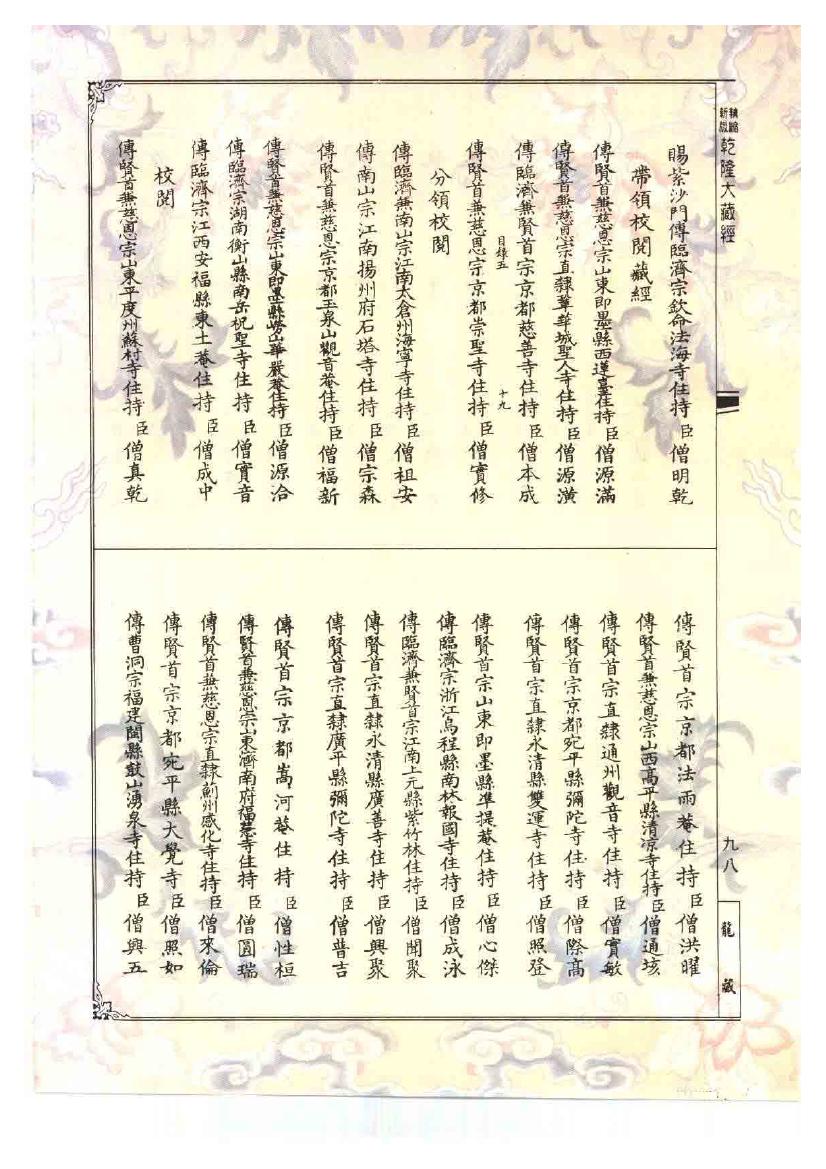 精縮
新版
乾隆大藏經
賜紫沙門傳臨濟宗欽命法海寺住持臣僧明乾
帶領校閱藏經
傳賢首兼慈恩宗山東即墨縣西蓮臺住持臣僧源滿
傳賢首兼慈恩宗直隸華城聖人寺住持臣僧源潢
傳臨濟兼賢首宗京都慈善寺住持臣僧本成
目錄五
十九
傳賢首兼慈恩宗京都崇聖寺住持臣僧實修
分領校閱
傳臨濟兼南山宗江南太倉州海寧寺住持臣僧祖安
傳南山宗江南揚州府石塔寺住持臣僧宗森
傳賢首兼慈恩宗京都玉泉山觀音菴住持臣僧福新
傳賢首兼慈恩宗山東即墨縣嶗山華嚴菴住持臣僧源洽
傳臨濟宗湖南衡山縣南岳祝聖寺住持臣僧實音
傳臨濟宗江西安福縣東土菴住持臣僧成中
校閱
傳賢首兼慈恩宗山東平度州蘇村寺住持臣僧真乾
傳賢首宗京都法雨菴住持臣僧洪曜
傳賢首兼慈恩宗山西高平縣清凉寺住持臣僧通垓
傳賢首宗直隸通州觀音寺住持臣僧實敏
傳賢首宗京都宛平縣彌陀寺住持臣僧際高
傳賢首宗直隸永清縣雙運寺住持臣僧照登
傳賢首宗山東即墨縣準提菴住持臣僧心傑
傳臨濟宗浙江烏程縣南林報國寺住持臣僧成泳
傳臨濟兼賢首宗江南上元縣紫竹林住持臣僧聞聚
傳賢首宗直隸永清縣廣善寺住持臣僧興聚
傳賢首宗直隸廣平縣彌陀寺住持臣僧普吉
傳賢首宗京都嵩河菴住持臣僧性桓
傳賢首兼慈恩宗山東濟南府福慧寺住持臣僧圓瑞
傳賢首兼慈恩宗直隸薊州感化寺住持臣僧來倫
傳賢首宗京都宛平縣大覺寺臣僧照如
傳曹洞宗福建閩縣鼓山湧泉寺住持臣僧興五
九八
龍藏